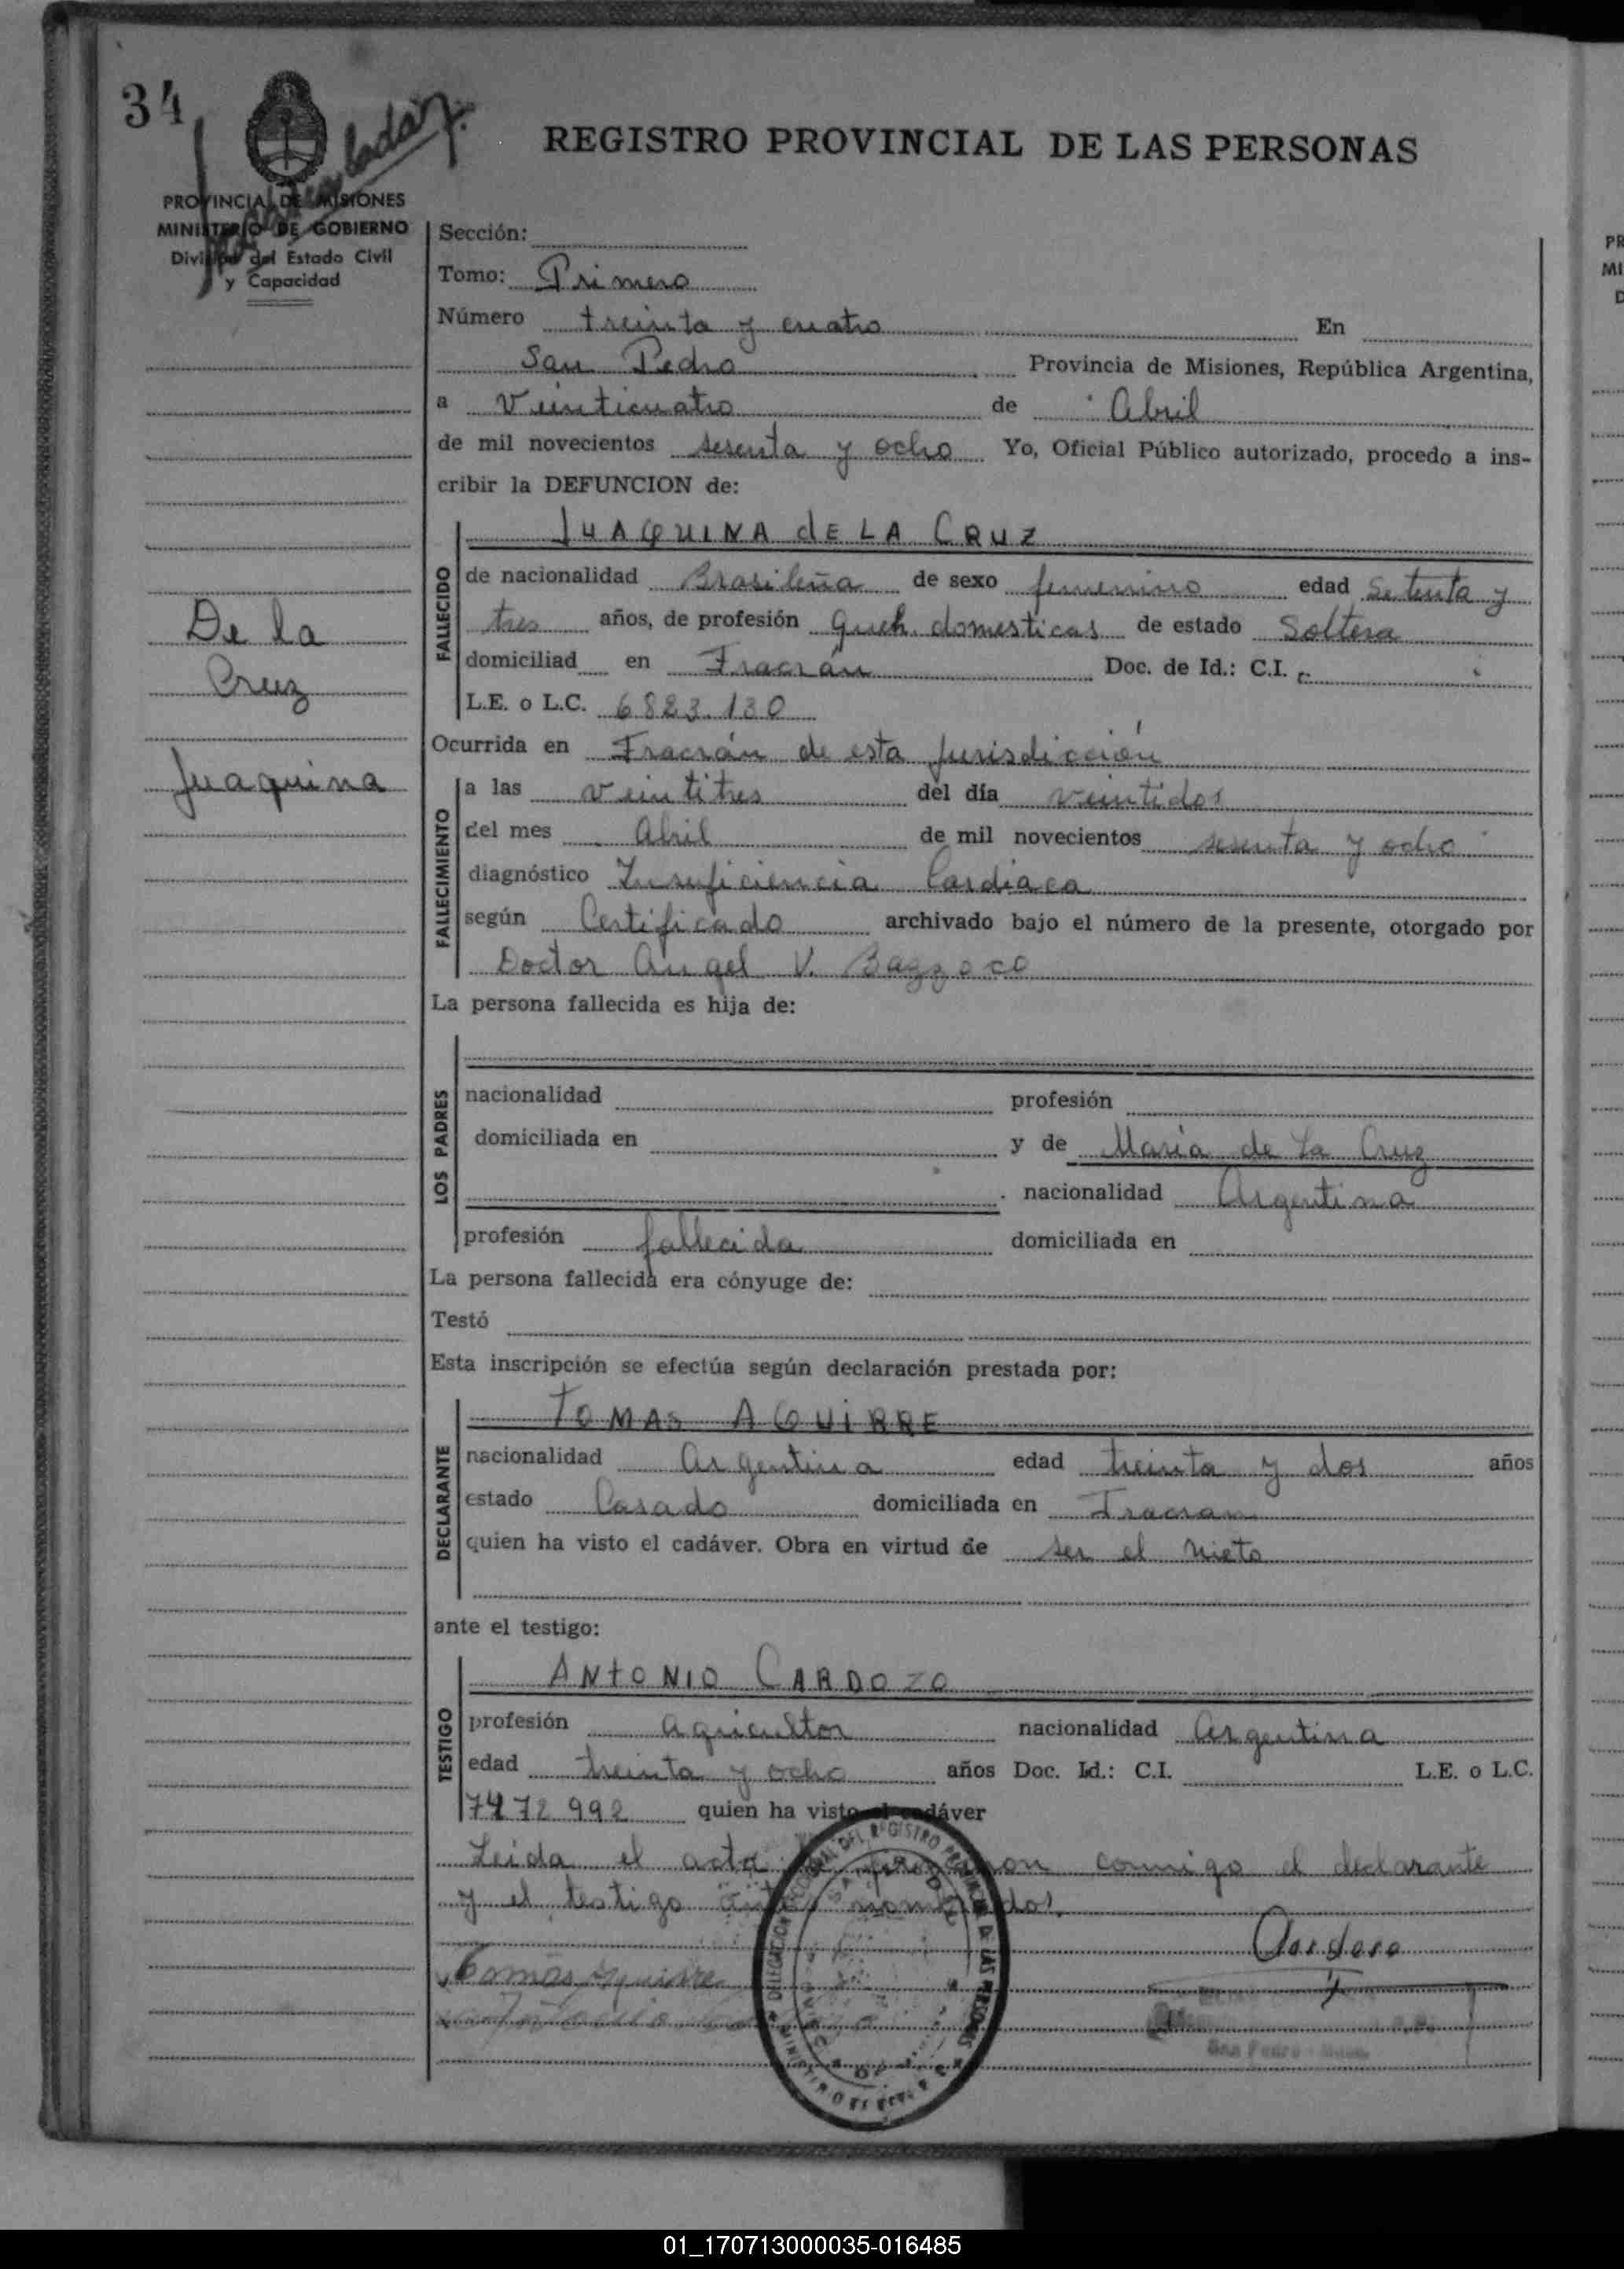 34
REGISTRO PROVINCIAL DE LAS PERSONAS
PROVINCIA DE MISIONES
MINISTERIO DE GOBIERNO
División del Estado Civil
y Capacidad
De la
Cruz
Juaquina
Sección:
Tomo: Primero
Número treinta y cuatro En
San Pedro Provincia de Misiones, República Argentina,
a Veinticuatro de Abril
de mil novecientos sesenta y ocho Yo, Oficial Público autorizado, procedo a ins-
cribir la DEFUNCION de:
FALLECIDO
JUAQUINA dE LA CRUZ
de nacionalidad Brasileña de sexo femenino edad Setenta y
tres años, de profesión Queh. domesticos de estado Soltera
domiciliad en Fracrán Doc. de Id.: C.I.
L.E. o L.C. 6823.130
Ocurrida en Fracrán de esta Jurisdicción
FALLECIMIENTO
a las veintitres del día veintidos
del mes Abril de mil novecientos sesenta y ocho
diagnóstico Insuficiencia Cardiaca
según Certificado archivado bajo el número de la presente, otorgado por
Doctor Angel V.
La persona fallecida es hija de:
LOS PADRES
nacionalidad profesión
domiciliada en y de Maria de La Cruz
nacionalidad Argentina
profesión fallecida domiciliada en
La persona fallecida era cónyuge de:
Testó
Esta inscripción se efectúa según declaración prestada por:
DECLARANTE
TOMAS AGUIRRE
nacionalidad Argentina edad treinta y dos años
estado Casado domiciliada en Fracran
quien ha visto el cadáver. Obra en virtud de ser el nieto
ante el testigo:
TESTIGO
ANTONIO CARDOZO
profesión agricultor nacionalidad Argentina
edad treinta y ocho años Doc. Id.: C.I. L.E. o L.C.
7472992 quien ha visto el cadáver
Leida el acta firmaron conmigo el declarante
y el testigo antes nombrados.
Tomas Aguirre
01_170713000035-016485